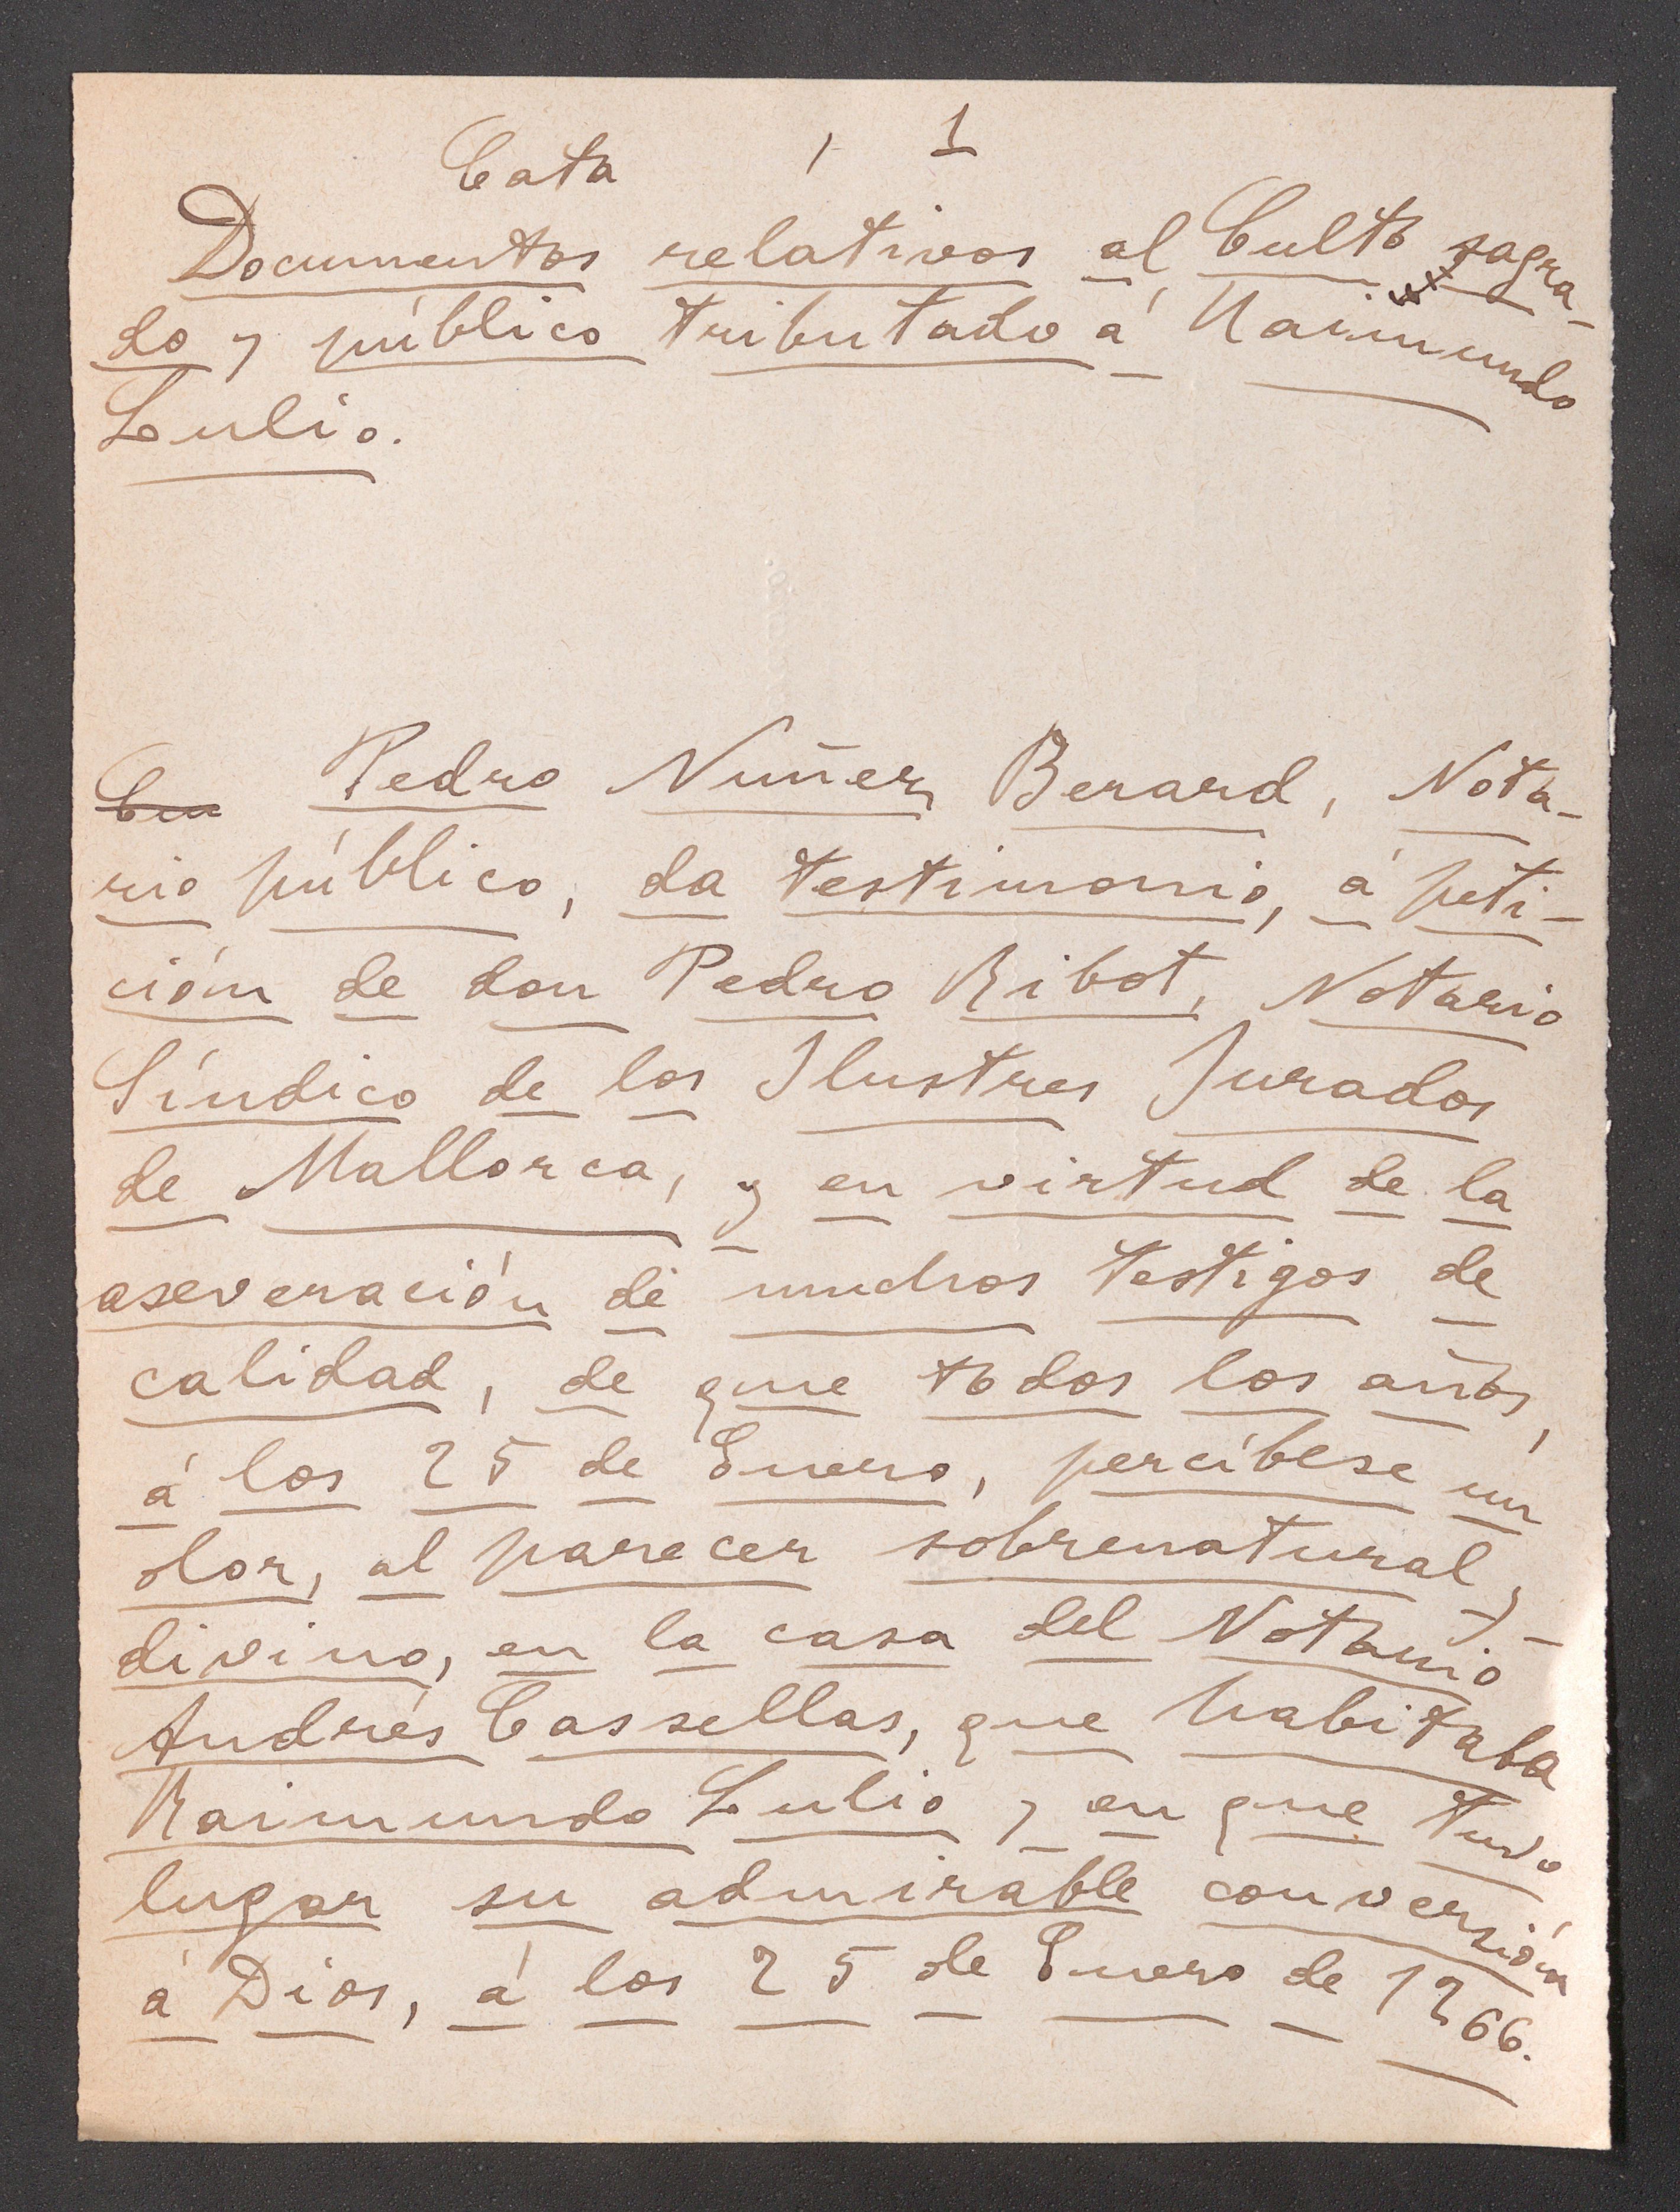 Cata , 1
Documentos relativos al Culto sagra-
do y público tributado á Raimundo
Lulio.
Cen Pedro Nuñez Berard, Nota-
rio público, da testimonio, á peti-
ción de don Pedro Ribot, Notario
Síndico de los Ilustres Jurados
de Mallorca, y en virtud de la
aseveración de muchos testigos de
calidad, de que todos los años,
á los 25 de Enero, percíbese un
olor, al parecer sobrenatural y
divino, en la casa del Notario
Andrés Cassellas, que habitaba
Raimundo Lulio y en que tuvo
lugar su admirable conversión
á Dios, á los 25 de Enero de 1266.